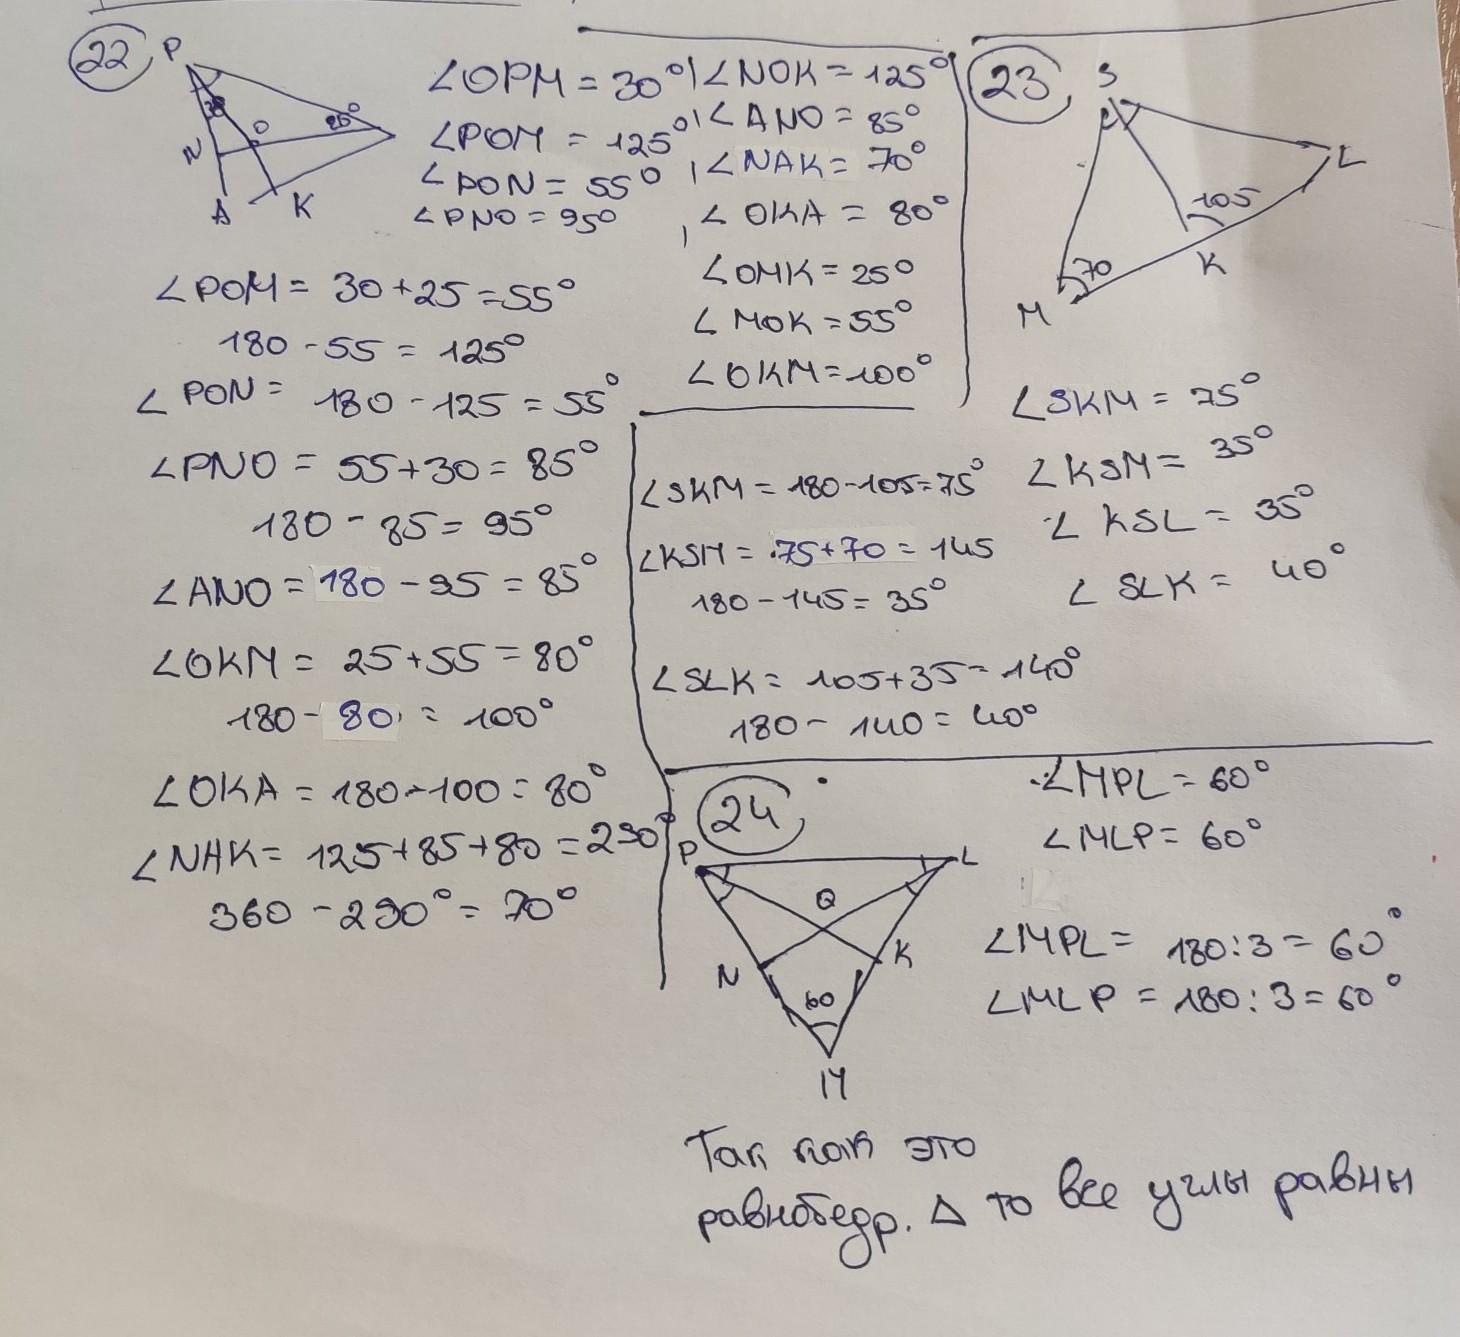 22
P
30
25°
O
N
A
K
∠OPM = 30°
∠POM = 125°
∠PON = 55°
∠PNO = 95°
∠NOK = 125°
∠ANO = 85°
∠NAK = 70°
∠OKA = 80°
∠OMK = 25°
∠MOK = 55°
∠OKM = 100°
∠POM = 30+25 = 55°
180 - 55 = 125°
∠PON = 180 - 125 = 55°
∠PNO = 55+30 = 85°
180 - 85 = 95°
∠ANO = 180 - 95 = 85°
∠OKM = 25+55 = 80°
180 - 80 = 100°
∠OKA = 180-100 = 80°
∠NAK = 125+85+80 = 290°
360 - 290° = 70°
23
S
L
105
K
70
M
∠SKM = 75°
∠KSM = 35°
∠KSL = 35°
∠SLK = 40°
∠SKM = 180-105=75°
∠KSM = 75+70 = 145
180-145 = 35°
∠SLK = 105+35 = 140°
180 - 140 = 40°
24
P
L
Q
N
K
60
M
∠MPL = 60°
∠MLP = 60°
∠MPL = 180:3 = 60°
∠MLP = 180:3 = 60°
Так как это
равнобедр. Δ то все углы равны